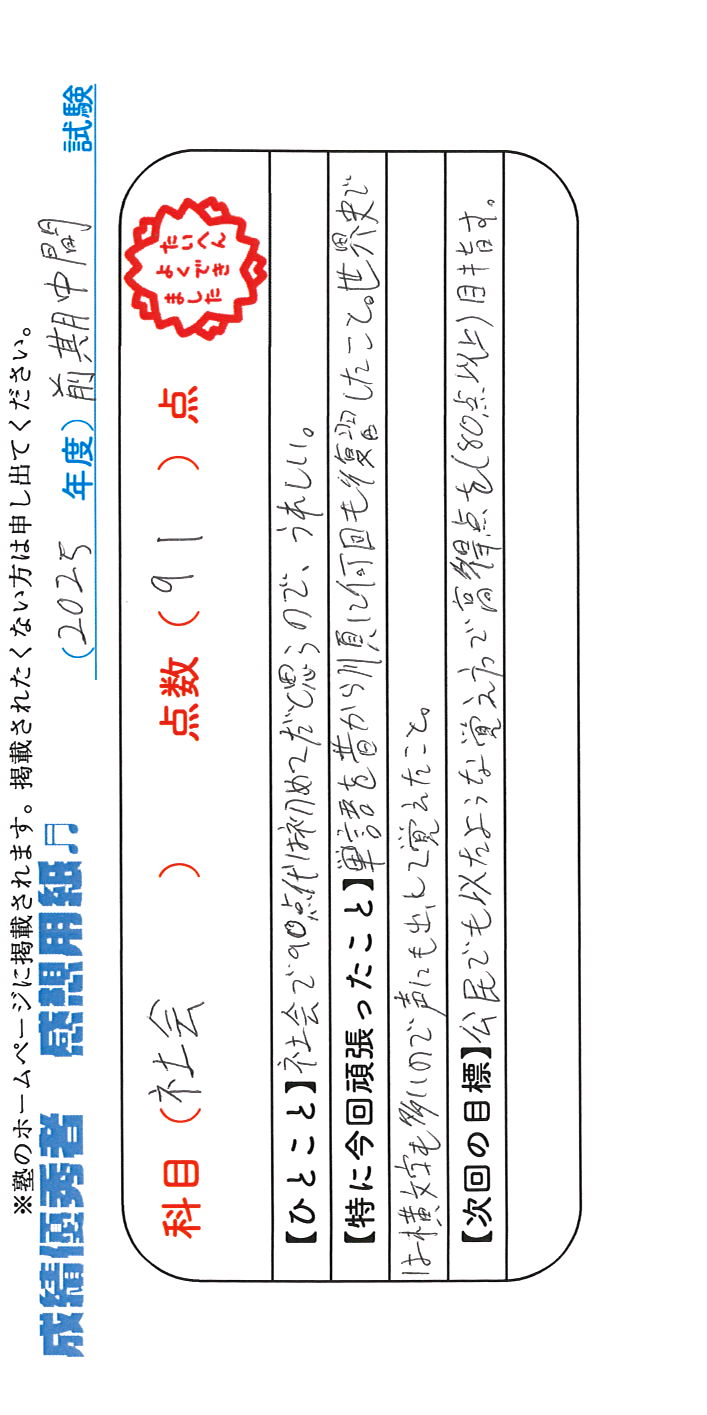 ※塾のホームページに掲載されます。掲載されたくない方は申し出てください。
成績優秀者 感想用紙♬ (2025 年度) 前期中間 試験
科目 (社会 ) 点数 (91 ) 点
たいへん
よくでき
ました
【ひとこと】社会で90点代は初めてだと思うので、うれしい。
【特に今回頑張ったこと】単語を昔から順に何回も復習したこと。世界史で
は横文字も多いので声にも出して覚えたこと。
【次回の目標】公民でも似たような覚え方で高得点を(80点以上)目指す。